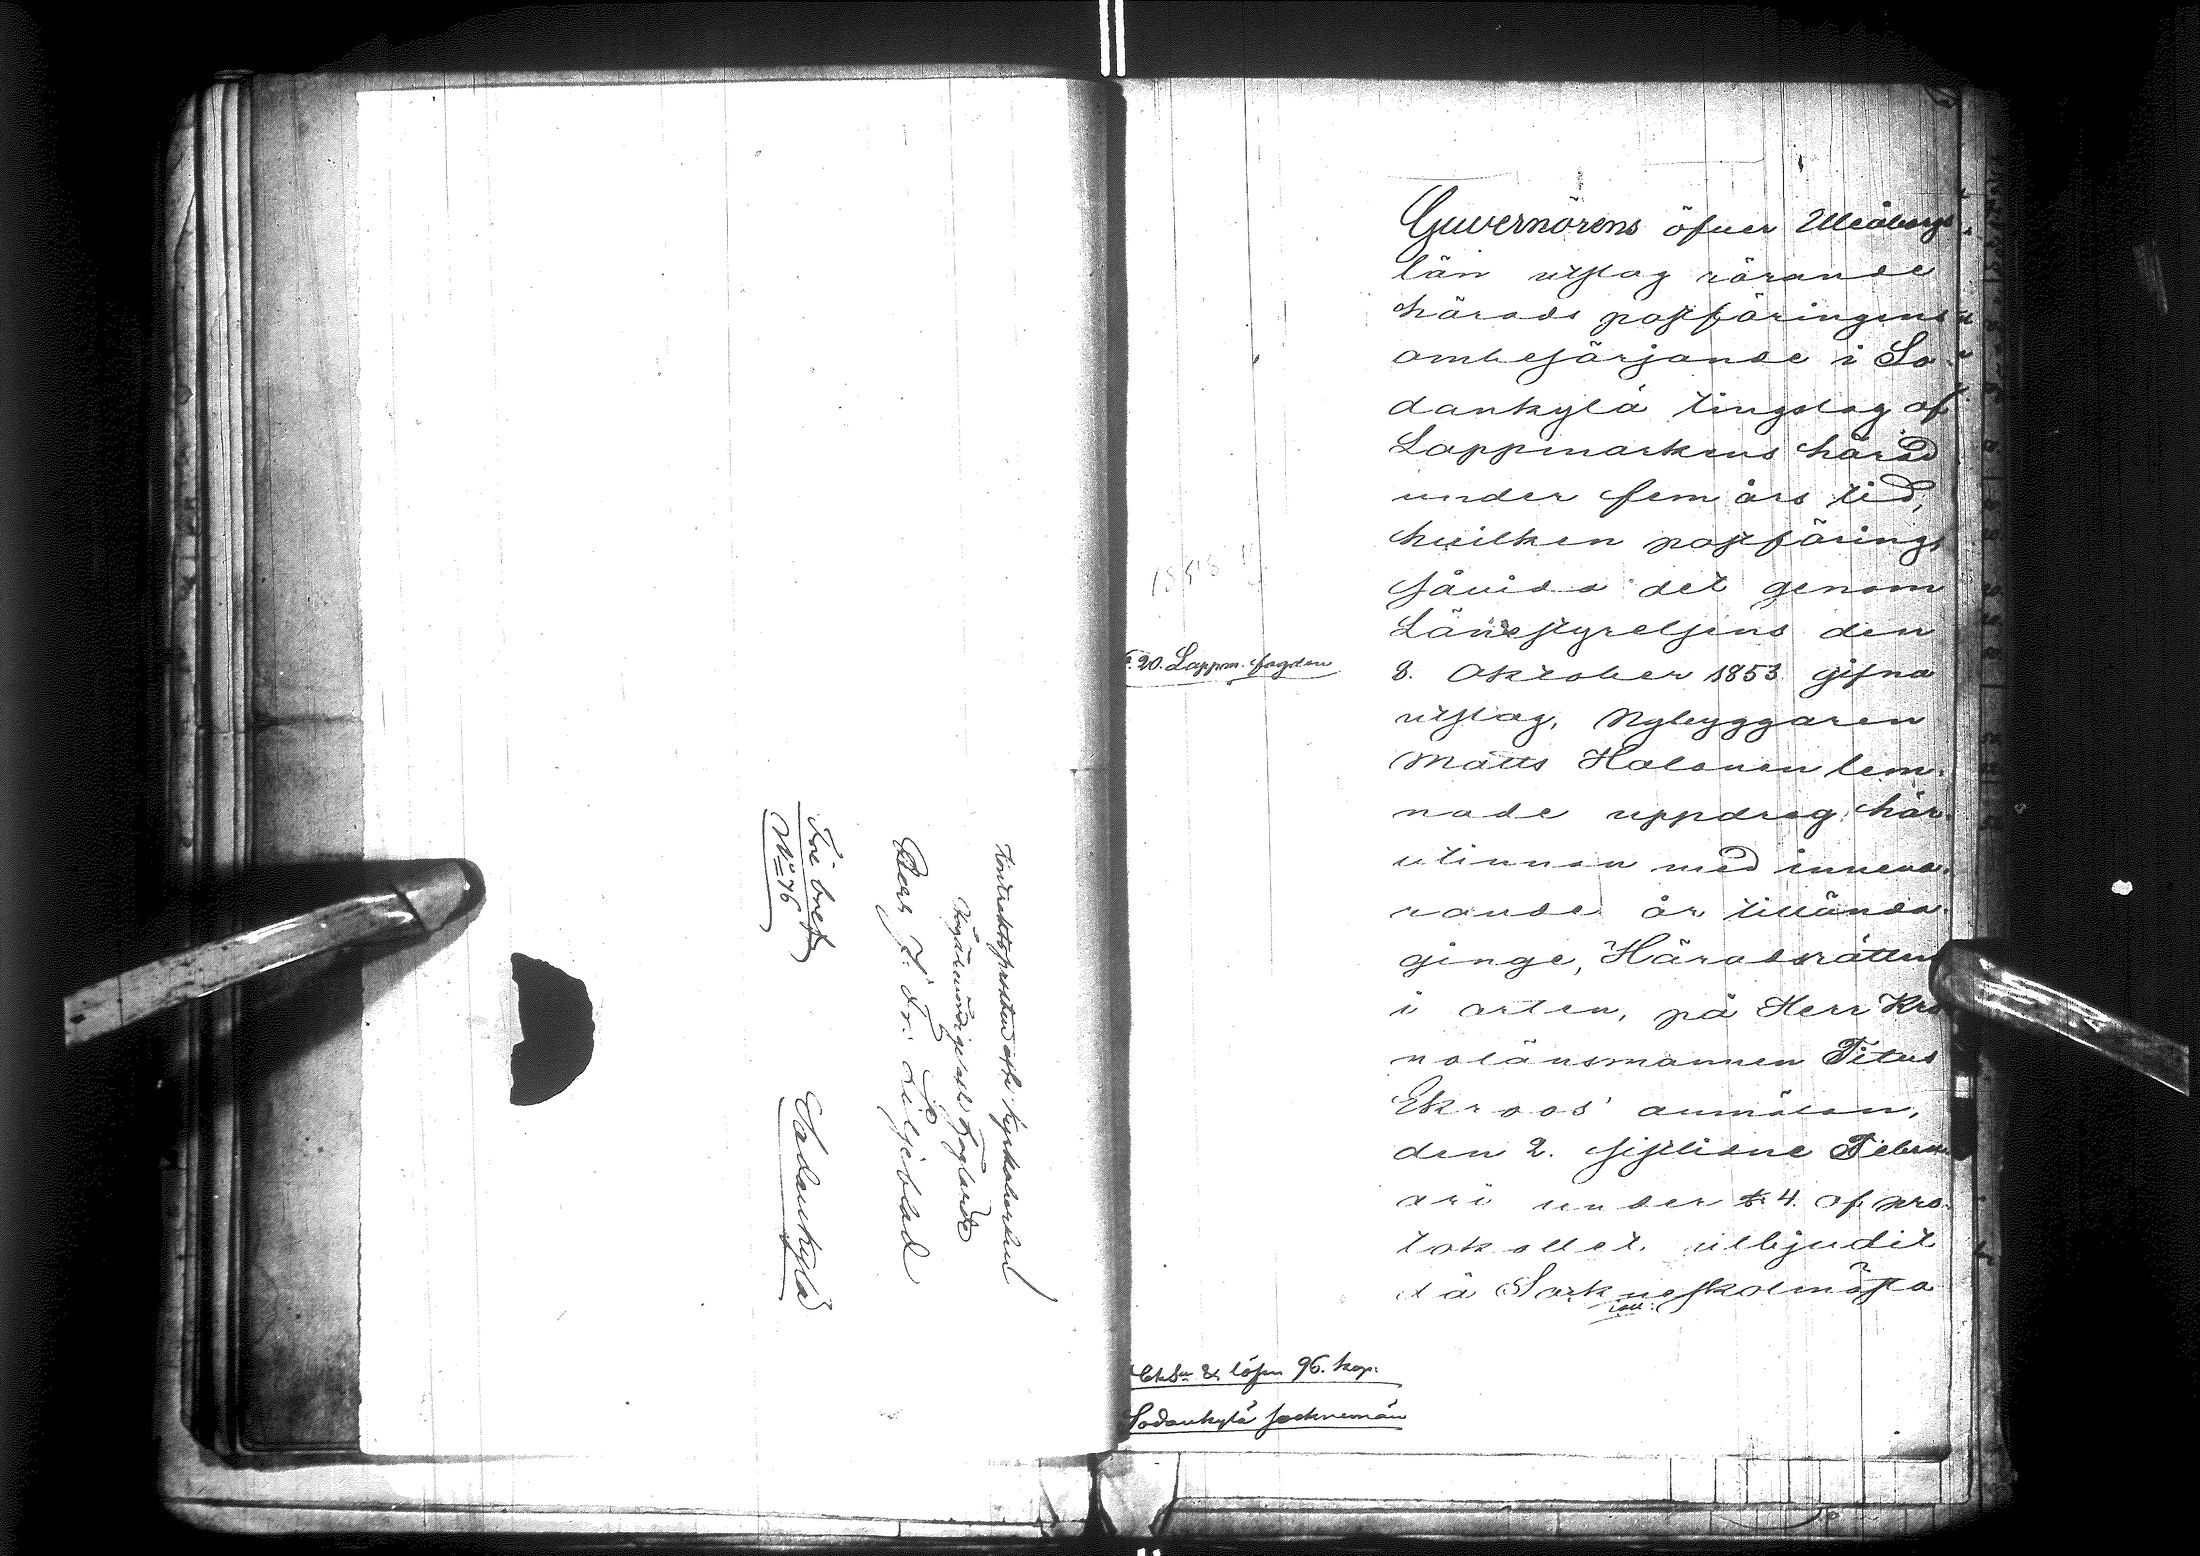 Kontraktsprosten och kyrkoherden
Högärevördige och Höglärde
J. Fr: Liljeblad
Fri bref
No 76
Sodankylä
Guvernörens öfver Uleåborgs
län utslag rörande
härads postföringens
ombesörjande i So-
dankylä tingslag af
Lappmarkens härad
under fem års tid,
hvilken postförings
såvida det genom
Länestyrelsens den
8. Oktober 1853 gifna
utslag, Nybyggaren
Matts Halonen lem-
nade uppdrag här-
utinnan med inneva-
rande år tillända-
ginge, Häradsrätten
i orten, på Herr Kro
nolänsmannen Titus
Ekroos' anmälan,
den 2. sistlidne Febru
ari under § 4. af pro-
tokollet utbjudit
då Socknesskolmästa
20. Lappm. fogden
lösen 96. kop.
Sodankylä socknemän